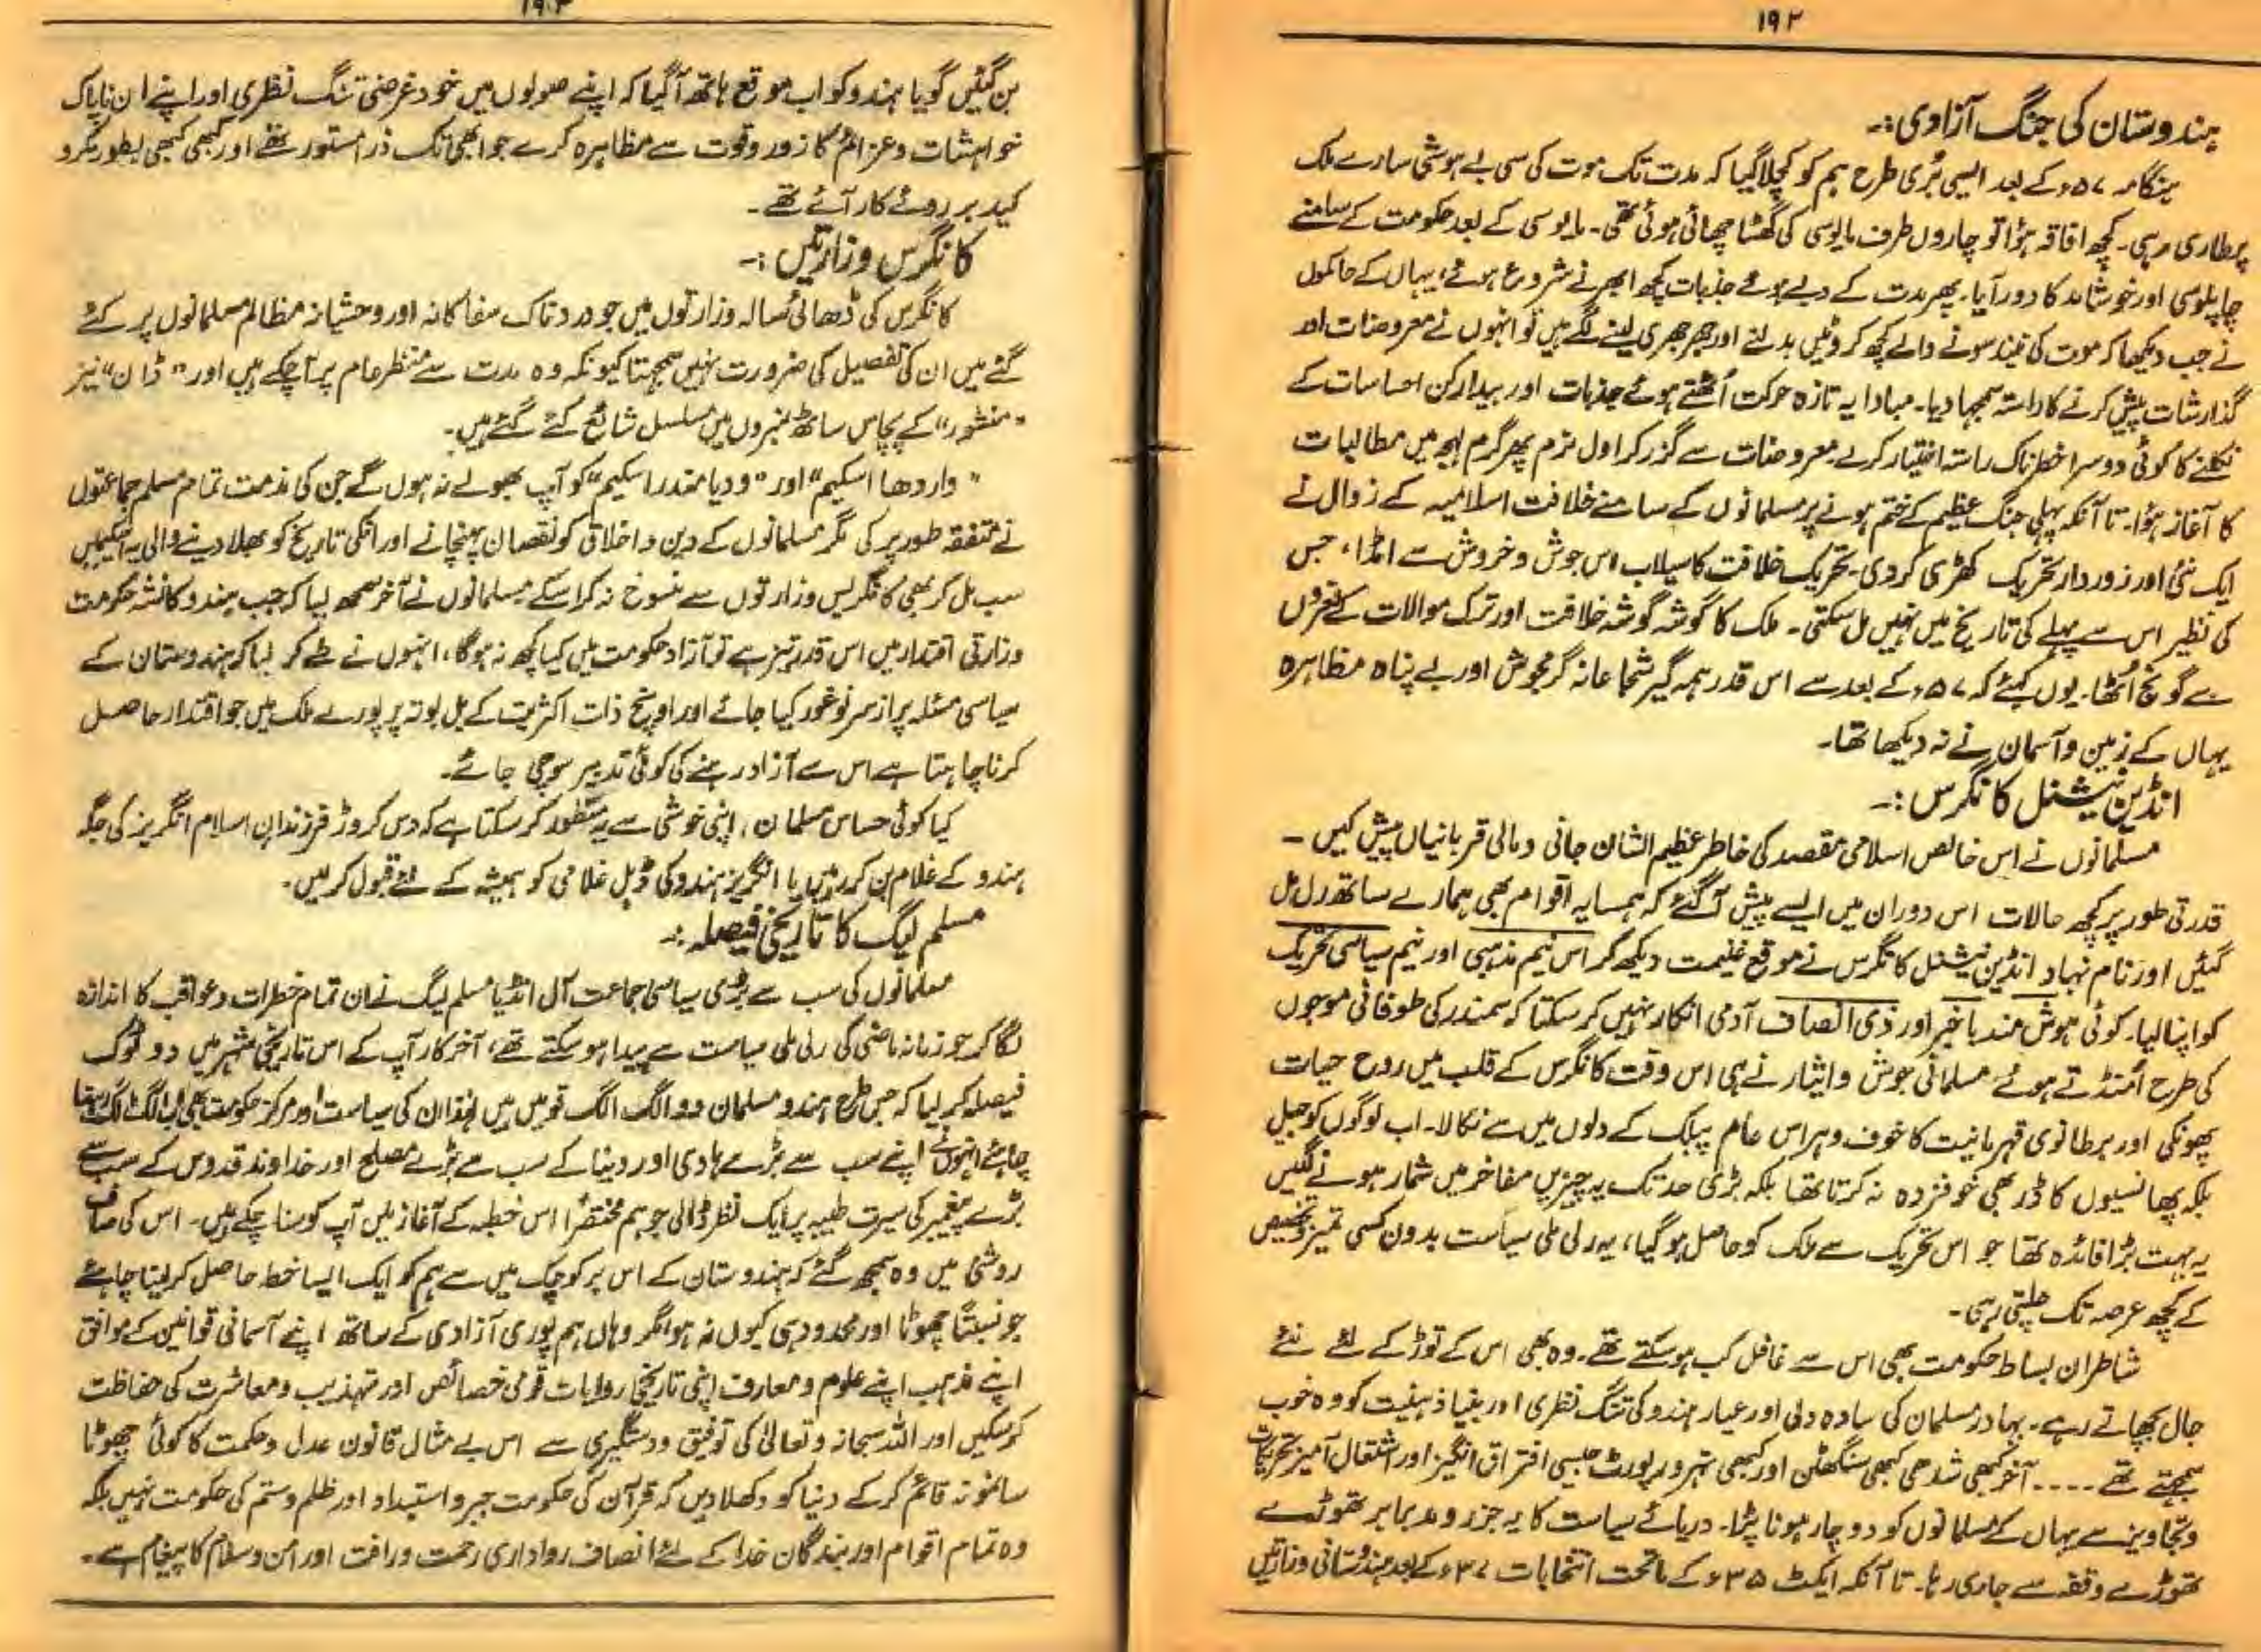 ۱۹۲
ہندوستان کی جنگ آزادی:۔
ہنگامہ ۵۷ء کے بعد ایسی بُری طرح ہم کو کچلا گیا کہ مدت تک موت کی سی بے ہوشی سارے ملک
پر طاری رہی۔ کچھ افاقہ ہؤا تو چاروں طرف مایوسی کی گھٹا چھائی ہوئی تھی۔ مایوسی کے بعد حکومت کے سامنے
چاپلوسی اور خوشامد کا دور آیا۔ پھر مدت کے دبے ہوئے جذبات کچھ ابھرنے شروع ہوئے، یہاں کے حاکموں
نے جب دیکھا کہ موت کی نیند سونے والے کچھ کروٹیں بدلنے اور جھرجھری لینے لگے ہیں تو انہوں نے معروضات اور
گذارشات پیش کرنے کا راستہ سمجھا دیا۔ مبادا یہ تازہ حرکت اُٹھتے ہوئے جذبات اور بیدارکن احساسات کے
نکلنے کا کوئی دوسرا خطرناک راستہ اختیار کرلے معروضات سے گزر کر اول نرم پھر گرم لہجہ میں مطالبات
کا آغاز ہؤا۔ تا آنکہ پہلی جنگ عظیم کے ختم ہونے پر مسلمانوں کے سامنے خلافت اسلامیہ کے زوال نے
ایک نئی اور زوردار تحریک کھڑی کردی۔ تحریک خلافت کا سیلاب اس جوش و خروش سے امڈا، جس
کی نظیر اس سے پہلے کی تاریخ میں نہیں مل سکتی۔ ملک کا گوشہ گوشہ خلافت اور ترک موالات کے نعروں
سے گونج اُٹھا۔ یوں کہئے کہ ۵۷ء کے بعد سے اس قدر ہمہ گیر شجاعانہ گرمجوش اور بے پناہ مظاہرہ
یہاں کے زمین و آسمان نے نہ دیکھا تھا۔
انڈین نیشنل کانگرس:۔
مسلمانوں نے اس خالص اسلامی مقصد کی خاطر عظیم الشان جانی و مالی قربانیاں پیش کیں۔
قدرتی طور پر کچھ حالات اس دوران میں ایسے پیش آگئے کہ ہمسایہ اقوام بھی ہمارے ساتھ رل مل
گئیں اور نام نہاد انڈین نیشنل کانگرس نے موقع غنیمت دیکھ کر اس نیم مذہبی اور نیم سیاسی تحریک
کو اپنا لیا۔ کوئی ہوش مند باخبر اور ذی انصاف آدمی انکار نہیں کرسکتا کہ سمندر کی طوفانی موجوں
کی طرح اُمنڈتے ہوئے مسلمانی جوش و ایثار نے ہی اس وقت کانگرس کے قلب میں روح حیات
پھونکی اور برطانوی قہرمانیت کا خوف و ہراس عام پبلک کے دلوں میں سے نکالا۔ اب لوگوں کو جیل
بلکہ پھانسیوں کا ڈر بھی خوفزدہ نہ کرتا تھا بلکہ بڑی حد تک یہ چیزیں مفاخر میں شمار ہونے لگیں
یہ بہت بڑا فائدہ تھا جو اس تحریک سے ملک کو حاصل ہوگیا، یہ رلی ملی سیاست بدون کسی تمیز و تخصیص
کے کچھ عرصہ تک چلتی رہی۔
شاطران بساط حکومت بھی اس سے غافل کب ہوسکتے تھے۔ وہ بھی اس کے توڑ کے لئے نئے
جال بچھاتے رہے۔ بہادر مسلمان کی سادہ دلی اور عیار ہندو کی تنگ نظری اور بنیا ذہنیت کو وہ خوب
سمجھتے تھے ۔۔۔۔ آخر کبھی شدھی کبھی سنگھٹن اور کبھی نہرو رپورٹ جیسی افتراق انگیز اور اشتعال آمیز تحریکات
و تجاویز سے یہاں کے مسلمانوں کو دوچار ہونا پڑا۔ دریائے سیاست کا یہ جزر و مد برابر تھوڑے
تھوڑے وقفہ سے جاری رہا۔ تا آنکہ ایکٹ ۳۵ء کے ماتحت انتخابات ۳۷ء کے بعد ہندوستانی وزارتیں
۱۹۳
بن گئیں گویا ہندو کو اب موقع ہاتھ آگیا کہ اپنے صوبوں میں خود غرضی تنگ نظری اور اپنے ان ناپاک
خواہشات و عزائم کا زور و قوت سے مظاہرہ کرے جو ابھی تک ذرا مستور تھے اور کبھی کبھی بطور مکر و
کید بر روئے کار آئے تھے۔
کانگرس وزارتیں:۔
کانگرس کی ڈھائی سالہ وزارتوں میں جو دردناک سفاکانہ اور وحشیانہ مظالم مسلمانوں پر کئے
گئے ہیں ان کی تفصیل کی ضرورت نہیں سمجھتا کیونکہ وہ مدت سے منظر عام پر آچکے ہیں اور "ڈان" نیز
"منشور" کے پچاس ساٹھ نمبروں میں مسلسل شائع کئے گئے ہیں۔
"واردھا اسکیم" اور "ودیا مندر اسکیم" کو آپ بھولے نہ ہوں گے جن کی مذمت تمام مسلم جماعتوں
نے متفقہ طور پر کی مگر مسلمانوں کے دین و اخلاق کو نقصان پہنچانے اور انکی تاریخ کو بھلا دینے والی یہ اسکیمیں
سب مل کر بھی کانگریس وزارتوں سے منسوخ نہ کراسکے مسلمانوں نے آخر سمجھ لیا کہ جب ہندو کا نشہ حکومت
وزارتی اقتدار میں اس قدر تیز ہے تو آزاد حکومت میں کیا کچھ نہ ہوگا، انہوں نے طے کر لیا کہ ہندوستان کے
سیاسی مسئلہ پر از سرنو غور کیا جائے اور اونچ ذات اکثریت کے بل بوتہ پر پورے ملک میں جو اقتدار حاصل
کرنا چاہتا ہے اس سے آزاد رہنے کی کوئی تدبیر سوچی جائے۔
کیا کوئی حساس مسلمان، اپنی خوشی سے یہ منظور کرسکتا ہے کہ دس کروڑ فرزندان اسلام انگریز کی جگہ
ہندو کے غلام بن کر رہیں یا انگریز ہندو کی ڈبل غلامی کو ہمیشہ کے لئے قبول کرلیں۔
مسلم لیگ کا تاریخی فیصلہ:۔
مسلمانوں کی سب سے بڑی سیاسی جماعت آل انڈیا مسلم لیگ نے ان تمام خطرات و عواقب کا اندازہ
لگا کر جو زمانہ ماضی کی رلی ملی سیاست سے پیدا ہوسکتے تھے، آخرکار آپ کے اس تاریخی شہر میں دو ٹوک
فیصلہ کر لیا کہ جس طرح ہندو مسلمان دو الگ الگ قومیں ہیں لہٰذا ان کی سیاست اور مرکز حکومت بھی اب الگ الگ رہنا
چاہئے انہوں نے اپنے سب سے بڑے ہادی اور دنیا کے سب سے بڑے مصلح اور خداوند قدوس کے سب سے
بڑے پیغمبر کی سیرت طیبہ پر ایک نظر ڈالی جو ہم مختصراً اس خطبہ کے آغاز میں آپ کو سنا چکے ہیں۔ اس کی صاف
روشنی میں وہ سمجھ گئے کہ ہندوستان کے اس بر کوچک میں سے ہم کو ایک ایسا خطہ حاصل کر لینا چاہئے
جو نسبتاً چھوٹا اور محدود ہی کیوں نہ ہو مگر وہاں ہم پوری آزادی کے ساتھ اپنے آسمانی قوانین کے موافق
اپنے مذہب اپنے علوم و معارف اپنی تاریخی روایات قومی خصائص اور تہذیب و معاشرت کی حفاظت
کرسکیں اور اللہ سبحانہ و تعالیٰ کی توفیق و دستگیری سے اس بے مثال قانون عدل و حکمت کا کوئی چھوٹا
سا نمونہ قائم کرکے دنیا کو دکھلا دیں کہ قرآن کی حکومت جبر و استبداد اور ظلم و ستم کی حکومت نہیں بلکہ
وہ تمام اقوام اور بندگان خدا کے لئے انصاف رواداری رحمت و رافت اور امن و سلام کا پیغام ہے۔